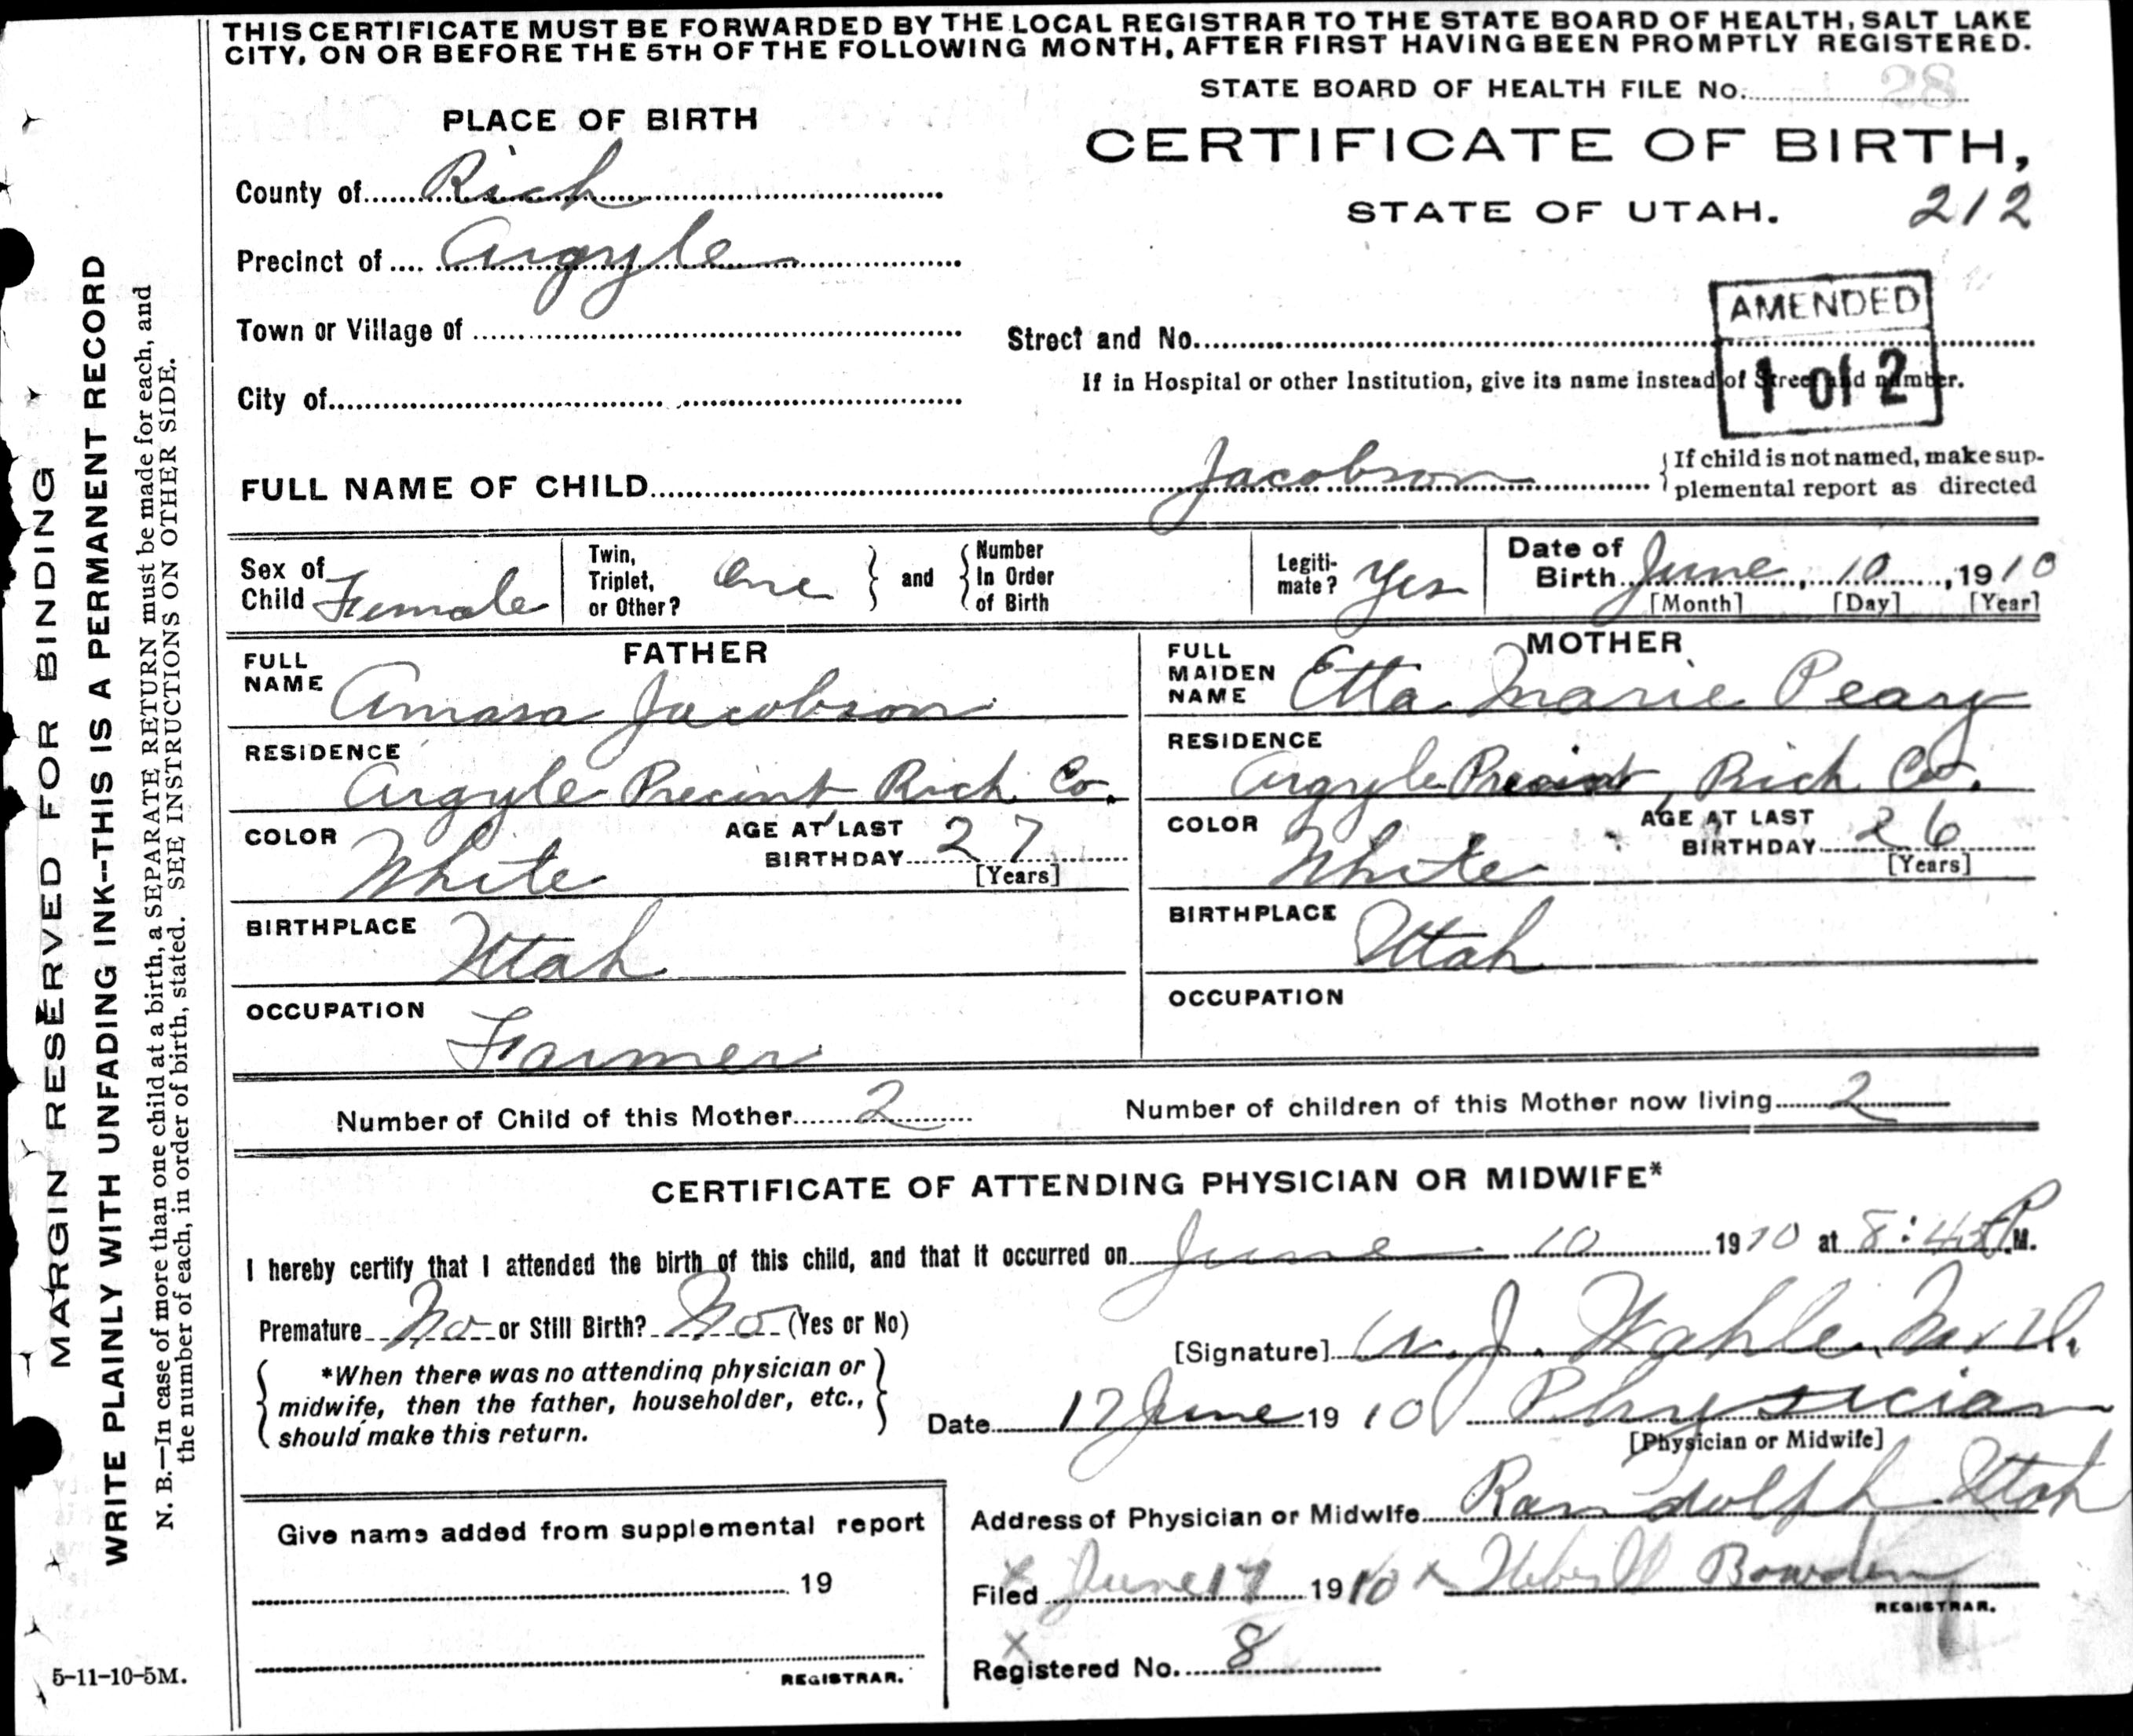 THIS CERTIFICATE MUST BE FORWARDED BY THE LOCAL REGISTRAR TO THE STATE BOARD OF HEALTH, SALT LAKE
CITY, ON OR BEFORE THE 5TH OF THE FOLLOWING MONTH, AFTER FIRST HAVING BEEN PROMPTLY REGISTERED.
STATE BOARD OF HEALTH FILE No. 28
PLACE OF BIRTH
CERTIFICATE OF BIRTH,
STATE OF UTAH. 212
County of Rich
Precinct of Argyle
Town or Village of
City of
Street and No.
If in Hospital or other Institution, give its name instead of Street and number.
AMENDED
1 of 2
FULL NAME OF CHILD Jacobson
If child is not named, make sup-
plemental report as directed
Sex of Child Female
Twin, Triplet, or Other? One
and
Number In Order of Birth
Legiti-mate? Yes
Date of Birth June, 10, 1910
[Month] [Day] [Year]
FATHER
FULL NAME Amasa Jacobson
RESIDENCE
Argyle Precint, Rich Co.
COLOR White
AGE AT LAST BIRTHDAY 27
[Years]
BIRTHPLACE Utah
OCCUPATION Farmer
MOTHER
FULL MAIDEN NAME Etta Marie Peary
RESIDENCE
Argyle Precint, Rich Co.
COLOR White
AGE AT LAST BIRTHDAY 26
[Years]
BIRTHPLACE Utah
OCCUPATION
Number of Child of this Mother 2
Number of children of this Mother now living 2
CERTIFICATE OF ATTENDING PHYSICIAN OR MIDWIFE*
I hereby certify that I attended the birth of this child, and that it occurred on June 10 1910 at 8:45 P.M.
Premature No or Still Birth? No (Yes or No)
*When there was no attending physician or
midwife, then the father, householder, etc.,
should make this return.
[Signature] W. J. Wahle, M. D.
Date 17 June 1910 Physician
[Physician or Midwife]
Give name added from supplemental report
19
REGISTRAR.
Address of Physician or Midwife Randolph Utah
Filed June 17 1910 x Bowden
REGISTRAR.
x
Registered No. 8
MARGIN RESERVED FOR BINDING
WRITE PLAINLY WITH UNFADING INK--THIS IS A PERMANENT RECORD
N. B.—In case of more than one child at a birth, a SEPARATE RETURN must be made for each, and
the number of each, in order of birth, stated. SEE INSTRUCTIONS ON OTHER SIDE.
5-11-10-5M.